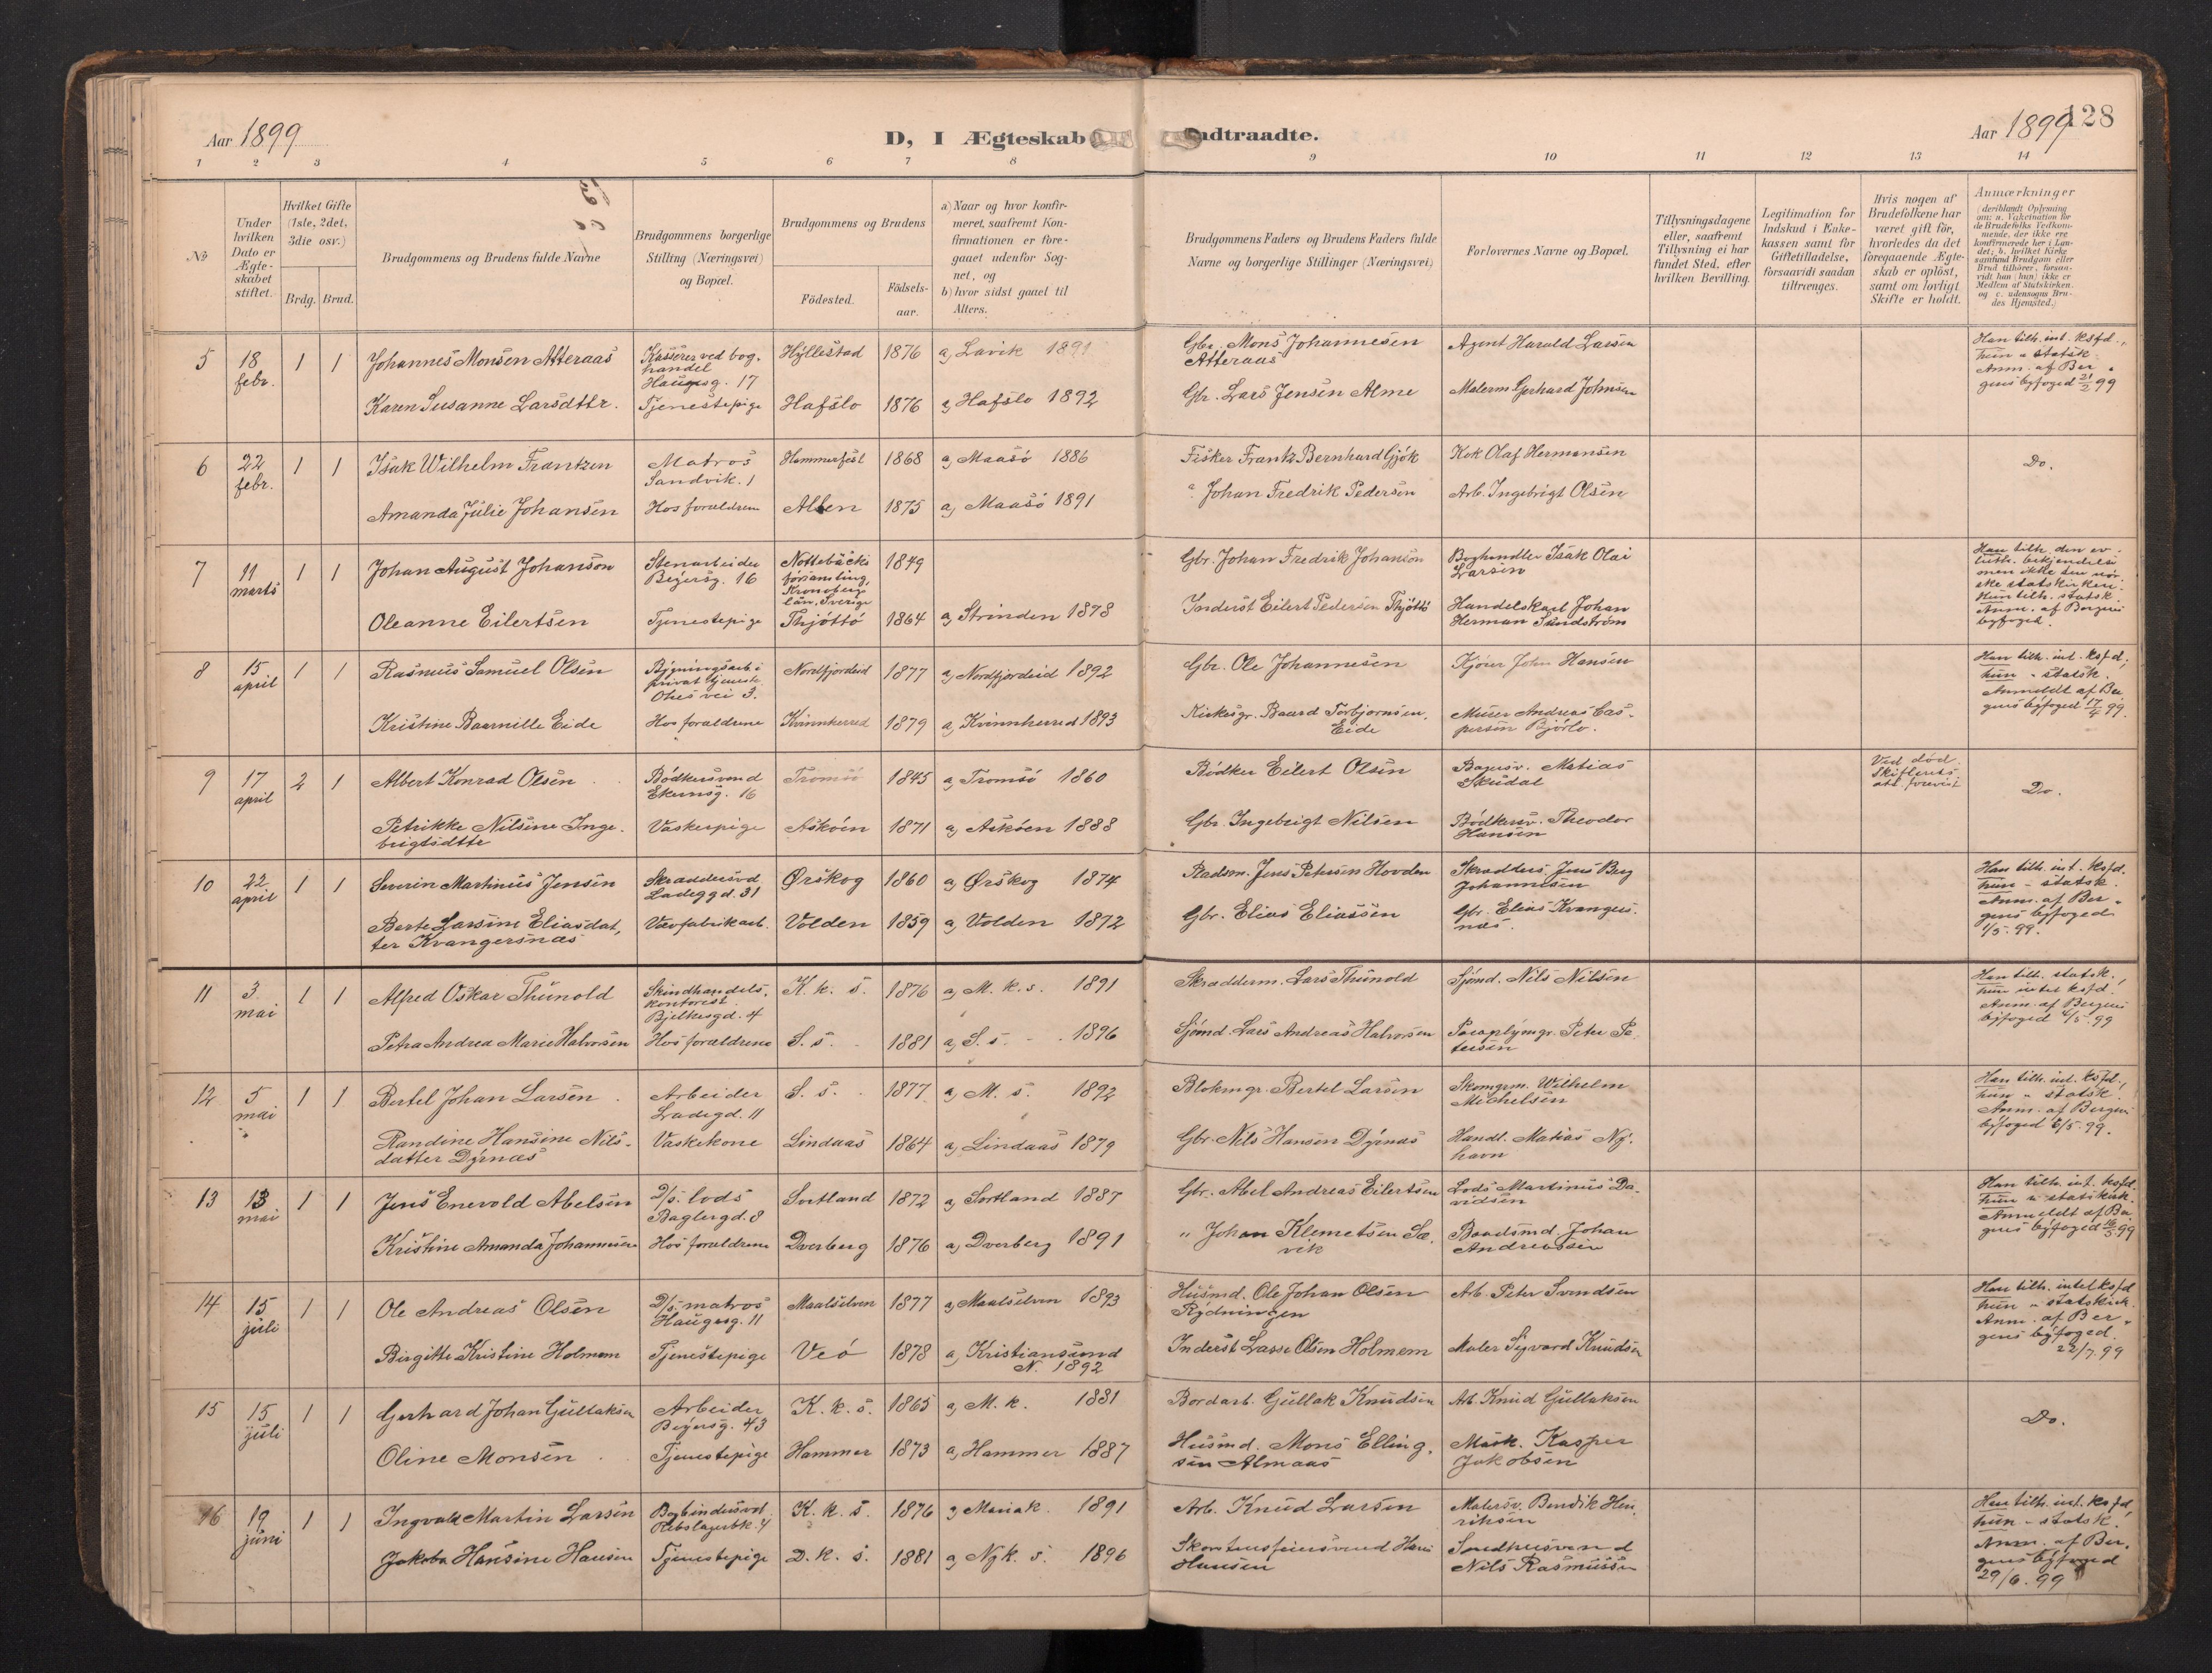 Aar 1899
D, I Ægteskab
ndtraadte.
Aar 1899
128
1 2 3 4 5 6 7 8 9 10 11 12 13 14
No
Under hvilken Dato er Ægteskabet stiftet.
Hvilket Gifte (1ste, 2det, 3die osv.)
Brdg. Brud.
Brudgommens og Brudens fulde Navne
Brudgommens borgerlige Stilling (Næringsvei) og Bopæl.
Brudgommens og Brudens
Födested.
Födselsaar.
a) Naar og hvor konfirmeret, saafremt Konfirmationen er foregaaet udenfor Sognet, og
b) hvor sidst gaaet til Alters.
Brudgommens Faders og Brudens Faders fulde Navne og borgerlige Stillinger (Næringsvei)
Forlovernes Navne og Bopæl.
Tillysningsdagene eller, saafremt Tillysning ei har fundet Sted, efter hvilken Bevilling.
Legitimation for Indskud i Enkekassen samt for Giftetilladelse, forsaavidt saadan tiltrænges.
Hvis nogen af Brudefolkene har været gift för, hvorledes da det foregaaende Ægteskab er oplöst, samt om lovligt Skifte er holdt.
Anmærkninger
(deriblandt Oplysning om: a. Vakcination for de Brudefolks Vedkommende, der ikke ere konfirmerede her i Landet; b. hvilket Kirkesamfund Brudgom eller Brud tilhörer, forsaavidt han (hun) ikke er Medlem af Statskirken, og c. udensogns Brudes Hjemsted.)
5 18 febr. 1 1 Johannes Monsen Atteraas Kasserer ved boghandel Haugesg. 17 Hyllestad 1876 a, Lavik 1891 Gbr. Mons Johannesen Atteraas Agent Harald Larsen Han tilh. int. ksfd., hun " statsk. Anm. af Bergens byfoged 21/2 99
Karen Susanne Larsdttr. Tjenestepige Hafslo 1876 a, Hafslo 1892 Gbr. Lars Jensen Alme Malerm. Gerhard Johnsen
6 22 febr. 1 1 Isak Wilhelm Frantzen Matros Sandvik. 1 Hammerfest 1868 a, Maasö 1886 Fisker Frantz Bernhard Gjök Kok Olaf Hermansen Do.
Amanda Julie Johansen Hos forældrene Alten 1875 a, Maasö 1891 " Johan Fredrik Pedersen Arb. Ingebrigt Olsen
7 11 marts 1 1 Johan August Johanson Stenarbeider Beyersg. 16 Nottebäcks Kronoberg län, Sverige 1849 Gbr. Johan Fredrik Johanson Boghandler Isak Olai Larsen Han tilh. den ev. luth. bekjendelse men ikke den norske statskirken. Hun tilh. statsk. Anm. af Bergens byfoged.
Oleanne Eilertsen Tjenestepige Thjöttö 1864 a, Strinden 1878 Inderst Eilert Pedersen Thjöttö Handelskarl Johan Herman Sundström
8 15 april 1 1 Rasmus Samuel Olsen Bygningsarb. i privat tjeneste vei 3. Nordfjordeid 1877 a, Nordfjordeid 1892 Gbr. Ole Johannesen Kjörer John Hansen Han tilh. int. ksfd., hun " statsk. Anmeldt af Bergens byfoged 17/4 99.
Kristine Baarnille Eide Hos forældrene Kvinnherred 1879 a, Kvinnherred 1893 Kirkesgr. Baard Torbjornsen Eide Murer Andreas Caspersen Björlo.
9 17 april 2 1 Albert Konrad Olsen Bödkersvend Ekernsg. 16 Tromsö 1845 a, Tromsö 1860 Bödker Eilert Olsen Bagersv. Matias Skudal Ved död. Skifterets att. forevist Do.
Petrikke Nilsine Ingebrigtsdttr Vaskerpige Asköen 1871 a, Asköen 1888 Gbr. Ingebrigt Nilsen Bödkersv. Theodor Hansen
10 22 april 1 1 Severin Martinus Jensen Skræddersvd. Ladeggd. 31 Ørskog 1860 a, Ørskog 1874 Stadsm. Jens Petersen Hovden Skrædders. Jens Berg Johannesen Han tilh. int. ksfd. hun - statsk. Anm. af Bergens byfoged 1/5. 99.
Berte Larsine Eliasdatter Kvangersnæs Vævfabrikarb. Volden 1859 a, Volden 1872 Gbr. Elias Eliassen Gbr. Elias Kvangersnæs.
11 3 mai 1 1 Alfred Oskar Thunold Skindhandels. kontorist. Bjelkesgd. 4 K. k. s. 1876 a, M. k. s. 1891 Skrædderm. Lars Thunold Sjömd. Nils Nilsen Han tilh. statsk. hun intet ksfd. Anm. af Bergens byfoged 4/5. 99
Petra Andrea Marie Halvorsen Hos forældrene S. s. 1881 a, S. s. 1896 Sjömd. Lars Andreas Halvorsen Paraplymgr. Peter Petersen
12 5 mai 1 1 Bertel Johan Larsen Arbeider Ladegd. 11 S. s. 1877 a, M. s. 1892 Blokmgr. Bertel Larsen Skomgrm. Wilhelm Michelsen Han tilh. int. ksfd., hun " statsk. Anm. af Bergens byfoged 6/5. 99.
Randine Hansine Nilsdatter Dyrnæs Vaskekone Lindaas 1864 a, Lindaas 1879 Gbr. Nils Hansen Dyrnæs Handl. Matias Nyhavn
13 13 mai 1 1 Jens Enevold Abelsen D/s. lods Baglergd. 8 Sortland 1872 a, Sortland 1887 Gbr. Abel Andreas Eilertsen Lods Martinus Davidsen Han tilh. int. ksfd. hun " statskirk. Anmeldt af Bergens byfoged 16/5 99
Kristine Amanda Johannesen Hos forældrene Dverberg 1876 a, Dverberg 1891 " Johan Klemetsen Sævik Baadsmd. Johan Andreassen
14 15 juli 1 1 Ole Andreas Olsen D/s. matros Haugesg. 11 Maalselven 1877 a, Maalselven 1893 Husmd. Ole Johan Olsen Rydningen Arb. Peter Svendsen Han tilh. intet ksfd hun " statskirk. Anm. af Bergens byfoged. 22/7. 99
Birgitte Kristine Holmem Tjenestepige Veö 1878 a, Kristiansund N. 1892 Inderst Lasse Olsen Holmem Maler Sigvard Knudsen
15 15 juli 1 1 Gerhard Johan Gullaksen Arbeider Beyersg. 43 K. k. s. 1865 a, M. k. 1881 Bordarb. Gullak Knudsen Arb. Knud Gullaksen Do.
Oline Monsen Tjenestepige Hammer 1873 a, Hammer 1887 Husmd. Mons Ellingsen Almaas Mask. Kasper Jakobsen
16 19 juni 1 1 Ingvald Martin Larsen Bogbindersvd. Rebslagerbk. 4 K. k. s. 1876 a, Mariak. 1891 Arb. Knud Larsen Malersv. Bendik Henriksen Han tilh. int. ksfd., hun - statsk. Anm. af Bergens byfoged 29/6. 99
Jakoba Hansine Hansen Tjenestepige D. k. s. 1881 a, Nyk. s. 1896 Skorstensfeiersvend Hans Hansen Smedhusvend Nils Rasmussen